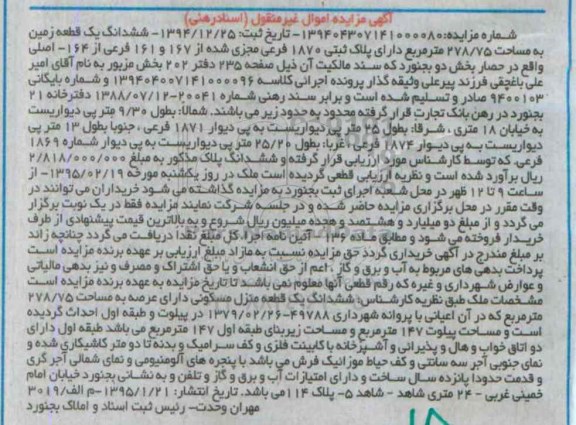 آگهی مزایده اموال غیرمنقول (اسنادرهنی)
شماره مزایده:139404307141000080- تاریخ ثبت: 1394/12/25- ششدانگ یک قطعه زمین
به مساحت 278/75 مترمربع دارای پلاک ثبتی 1870 فرعی مجزی شده از 167 و 161 فرعی از 164- اصلی
واقع در حصار بخش دو بجنورد که سند مالکیت آن ذیل صفحه 235 دفتر 202 بخش مزبور به نام آقای امیر
علی باغچقی فرزند پیرعلی وثیقه گذار پرونده اجرائی کلاسه 139404007141000096 و شماره بایگانی
9400103 صادر و تسلیم شده است و برابر سند رهنی شماره 20041-1388/07/12 دفترخانه 21
بجنورد در رهن بانک تجارت قرار گرفته محدود به حدود زیر می باشند. شمالا: بطول 9/30 متر پی دیواریست
به خیابان 18 متری ، شرقا: بطول 25 متر پی دیواریست به پی دیوار 1871 فرعی ، جنوبا بطول 13 متر پی
دیواریست به پی دیوار 1874 فرعی ، غربا: بطول 25/20 متر پی دیواریست به پی دیوار شماره 1869
فرعی. که توسط کارشناس مورد ارزیابی قرار گرفته و ششدانگ پلاک مذکور به مبلغ 2/818/000/000
ریال برآورد شده است و نظریه ارزیابی قطعی گردیده است ملک در روز یکشنبه مورخه 1395/02/19- از
ساعت 9 تا 12 ظهر در محل شعبه اجرای ثبت بجنورد به مزایده گذاشته می شود خریداران می توانند در
وقت مقرر در محل برگزاری مزایده حاضر شده و در جلسه شرکت نمایند مزایده فقط در یک نوبت برگزار
می گردد و از مبلغ دو میلیارد و هشتصد و هجده میلیون ریال شروع و به بالاترین قیمت پیشنهادی از طرف
خریدار فروخته می شود و مطابق ماده 136- آئین نامه اجرا، کل مبلغ نقدا دریافت می گردد چنانچه زاند
بر مبلغ مندرج در آگهی خریداری گردد حق مزایده نسبت به مازاد مبلغ ارزیابی بر عهده برنده مزایده است
پرداخت بدهی های مربوط به آب و برق و گاز ، اعم از حق انشعاب و یا حق اشتراک و مصرف و نیز بدهی مالیاتی
و عوارض شهرداری و غیره که رقم قطعی آنها معلوم نمی باشد تا تاریخ مزایده به عهده برنده مزایده است
مشخصات ملک طبق نظریه کارشناس: ششدانگ یک قطعه منزل مسکونی دارای عرصه به مساحت 278/75
مترمربع که در آن اعیانی با پروانه شهرداری 49788-1379/02/26 در پیلوت و طبقه اول احداث گردیده
است و مساحت پیلوت 147 مترمربع و مساحت زیربنای طبقه اول 147 مترمربع می باشد طبقه اول دارای
دو اتاق خواب و هال و پذیرائی و آشپزخانه با کابینت فلزی و کف سرامیک و بدنه تا دو متر کاشیکاری شده و
نمای جنوبی آجر سه سانتی و کف حیاط موزائیک فرش می باشد با پنجره های آلومنیومی و نمای شمالی آجر گری
و قدمت حدودا پانزده سال ساخت و دارای امتیازات آب و برق و گاز و تلفن و به نشانی بجنورد خیابان امام
خمینی غربی - 24 متری شاهد - شاهد 5- پلاک 114می باشد. تاریخ انتشار: 1395/1/21-م الف/3019
مهران وحدت- رئیس ثبت اسناد و املاک بجنورد